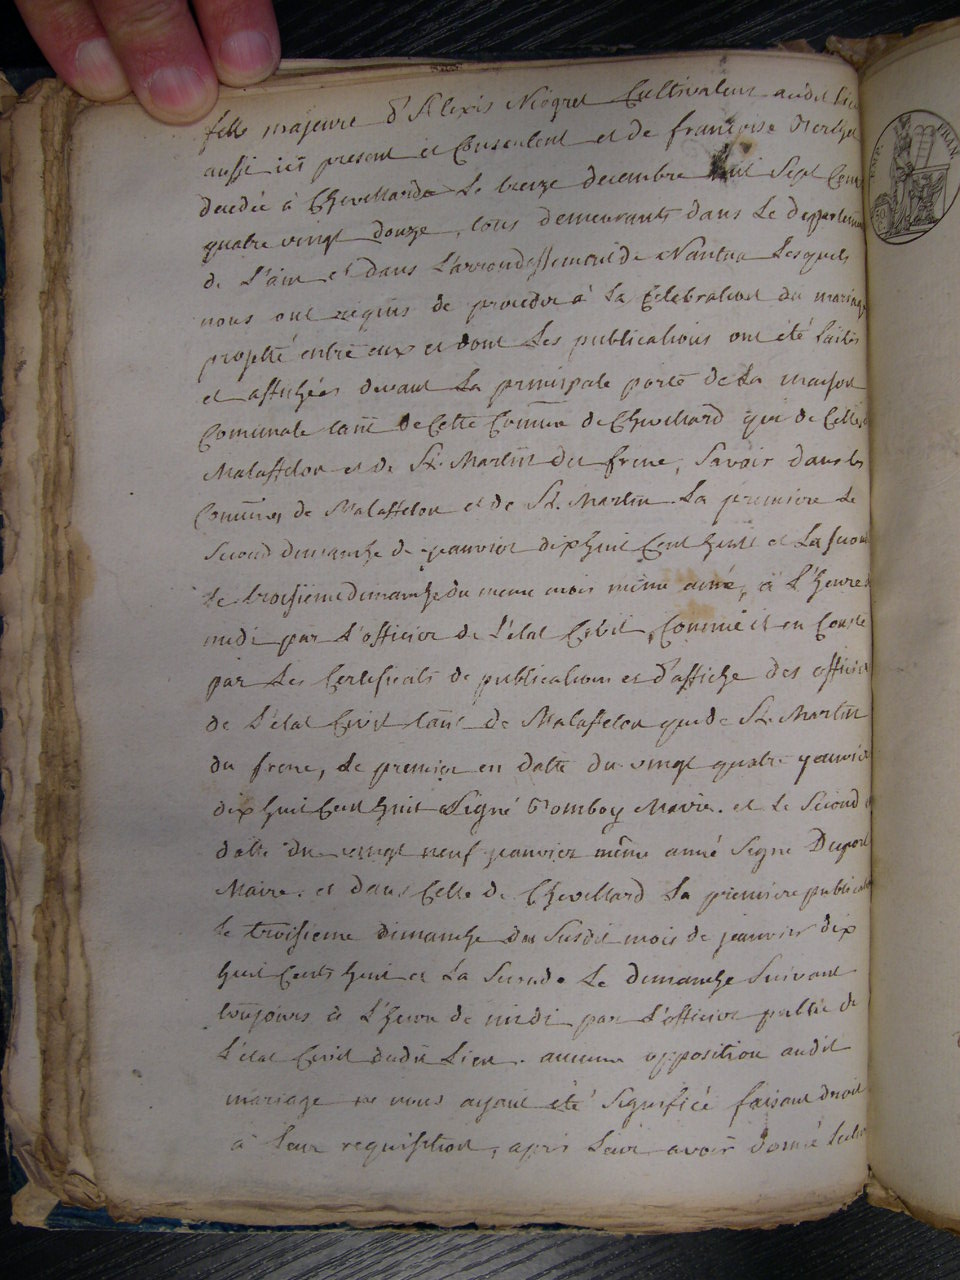 fille majeure d'Alexis Niogret Cultivateur audit lieu
aussi ici present et Consentent et de françoise
decedée à Chevillard Le treize decembre mil Sept Cent
quatre vingt douze, tous demeurants dans Le departement
de L'ain et dans L'arrondissement de Nantua Lesquels
nous ont requis de proceder à La Celebration du mariage
projetté entre eux et dont Les publications ont été faites
et affichées devant La principale porte de La maison
Comunale tant de Cette Comune de Chevillard que de Celles
Malaffelon et de St. Martin du frene, Savoir dans les
Comunes de Malaffelon et de St. Martin La premiere Le
Second dimanche de janvier dix huit Cent huit et La Seconde
le troisieme dimanche du meme mois même année, à L'heure de
midi par L'officier de L'état Civil, Comme il en Conste
par Les Certificats de publications et d'affiche des officiers
de L'état Civil tant de Malaffelon que de St. Martin
du frene, Le premier en datte du vingt quatre janvier
dix huit Cent huit Signé Maire. et Le Second
datte du vingt neuf janvier même année Signé Dupont
Maire. et dans Celle de Chevillard La premiere publication
le troisieme dimanche du Susdit mois de janvier dix
huit Cents huit et La Seconde Le dimanche Suivant
toujours à L'heure de midi par L'officier public de
L'état Civil dudit Lieu. aucune opposition audit
mariage ne nous ayant été Signifiée faisant droit
à Leur requisition, après Leur avoir donné